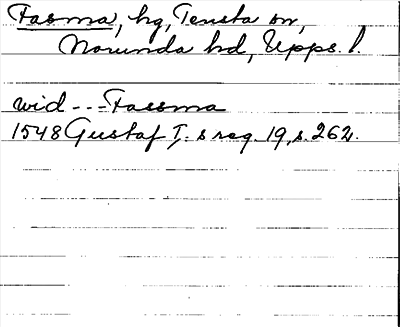 Fasma, hg, Tensta sn,
Norunda hd, Upps. l.
wid --- Fassma
1548 Gustaf I:s reg. 19, s. 262.